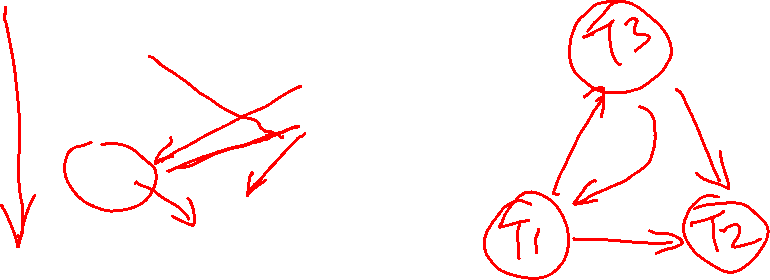 T3
T1
T2